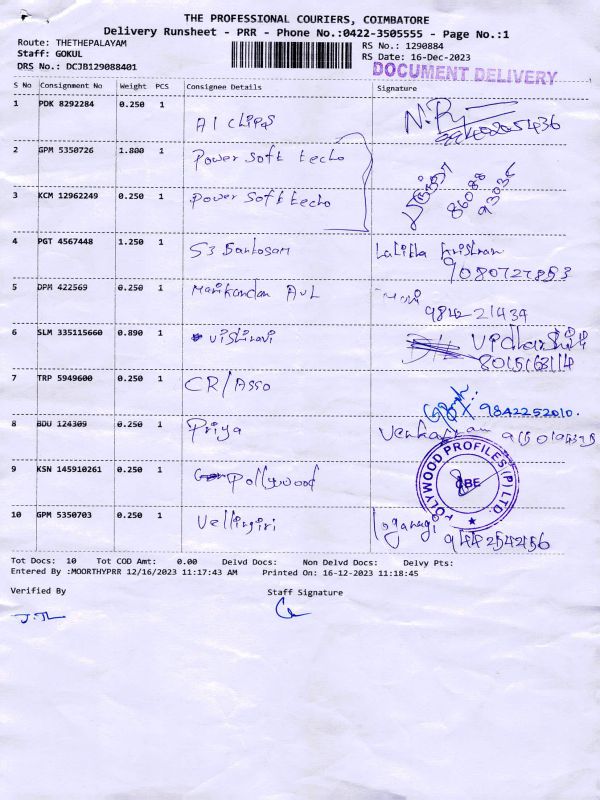 THE PROFESSIONAL COURIERS, COIMBATORE
Delivery Runsheet - PRR - Phone No.:0422-3505555 - Page No.:1
Route: THETHEPALAYAM
Staff: GOKUL
DRS No.: DCJB129088401
RS No.: 1290884
RS Date: 16-Dec-2023
DOCUMENT DELIVERY
S No Consignment No Weight PCS Consignee Details Signature
1 PDK 8292284 0.250 1 A1 chips
2 GPM 5350726 1.800 1 Power soft techo
3 KCM 12962249 0.250 1 power soft techo
4 PGT 4567448 1.250 1 S3 Santosam Lalitha
5 DPM 422569 0.250 1 Manikandan AVL Mani
9842 21434
6 SLM 335115660 0.890 1
8015168114
7 TRP 5949600 0.250 1 CR/Asso
9842252010.
8 BDU 124309 0.250 1 Priya
9 KSN 145910261 0.250 1 Pollywood
POLYWOOD PROFILES (P) LTD.
10 GPM 5350703 0.250 1 Vellingiri
9442542456
Tot Docs: 10 Tot COD Amt: 0.00 Delvd Docs: Non Delvd Docs: Delvy Pts:
Entered By :MOORTHYPRR 12/16/2023 11:17:43 AM Printed On: 16-12-2023 11:18:45
Verified By Staff Signature